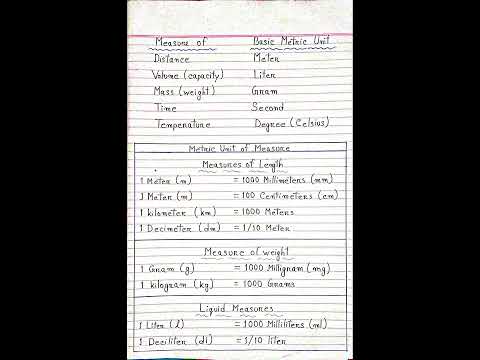 Measure of Basic Metric Unit
Distance Meter
Volume (capacity) Liter
Mass (weight) Gram
Time Second
Temperature Degree (Celsius)
Metric Unit of Measure
Measures of Length
1 Meter (m) = 1000 Millimeters (mm)
1 Meter (m) = 100 Centimeters (cm)
1 kilometer (km) = 1000 Meters
1 Decimeter (dm) = 1/10 Meter
Measure of weight
1 Gram (g) = 1000 Milligram (mg)
1 kilogram (kg) = 1000 Grams
Liquid Measures
1 Liter (l) = 1000 Milliliters (ml)
1 Deciliter (dl) = 1/10 liter